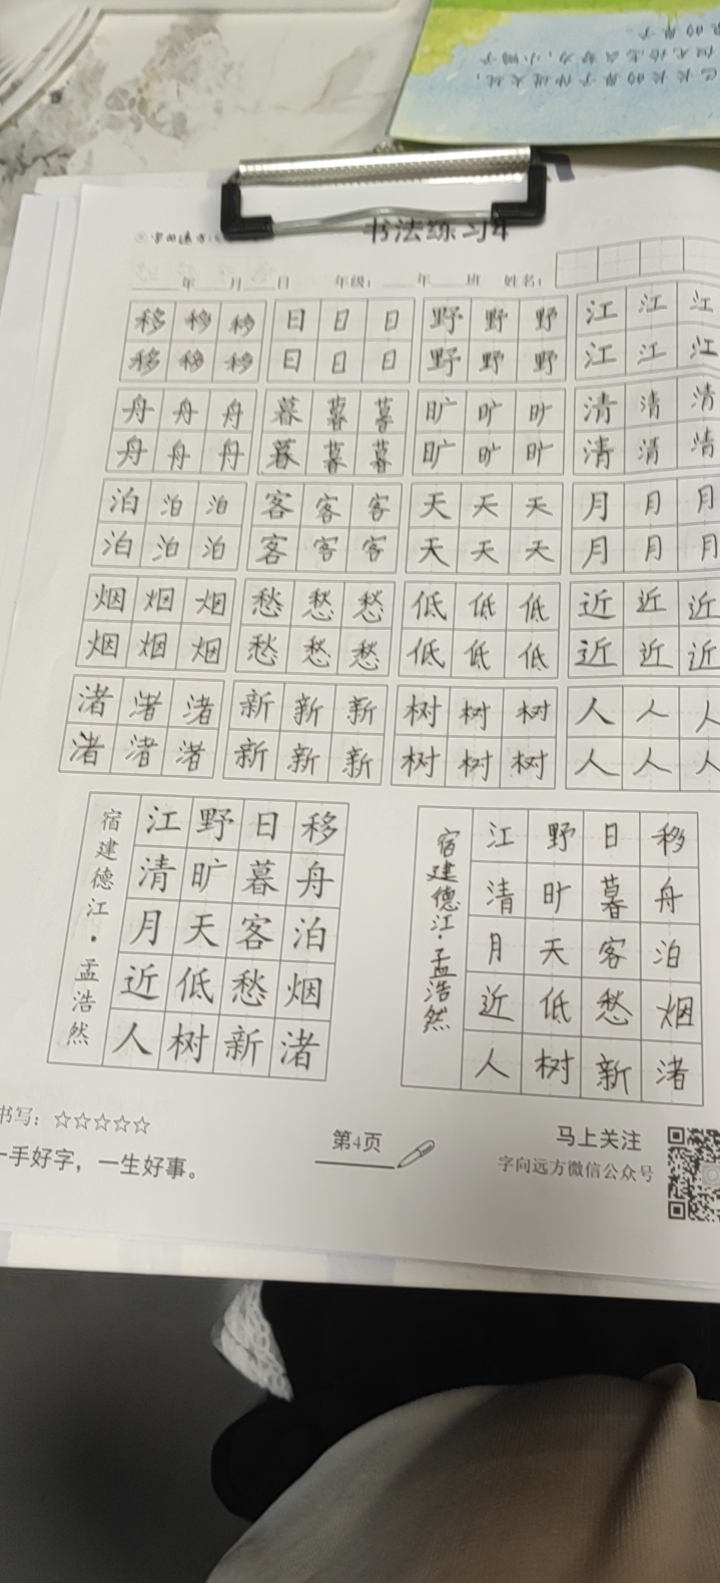 书法练习4
年 月 日 年级： 年 班 姓名：
移 移 移 日 日 日 野 野 野 江 江 江
移 移 移 日 日 日 野 野 野 江 江 江
舟 舟 舟 暮 暮 暮 旷 旷 旷 清 清 清
舟 舟 舟 暮 暮 暮 旷 旷 旷 清 清 清
泊 泊 泊 客 客 客 天 天 天 月 月 月
泊 泊 泊 客 客 客 天 天 天 月 月 月
烟 烟 烟 愁 愁 愁 低 低 低 近 近 近
烟 烟 烟 愁 愁 愁 低 低 低 近 近 近
渚 渚 渚 新 新 新 树 树 树 人 人 人
渚 渚 渚 新 新 新 树 树 树 人 人 人
移舟泊烟渚
日暮客愁新
野旷天低树
江清月近人
宿建德江·孟浩然
移舟泊烟渚
日暮客愁新
野旷天低树
江清月近人
宿建德江·孟浩然
书写：☆☆☆☆☆
一手好字，一生好事。
第4页
马上关注
字向远方微信公众号